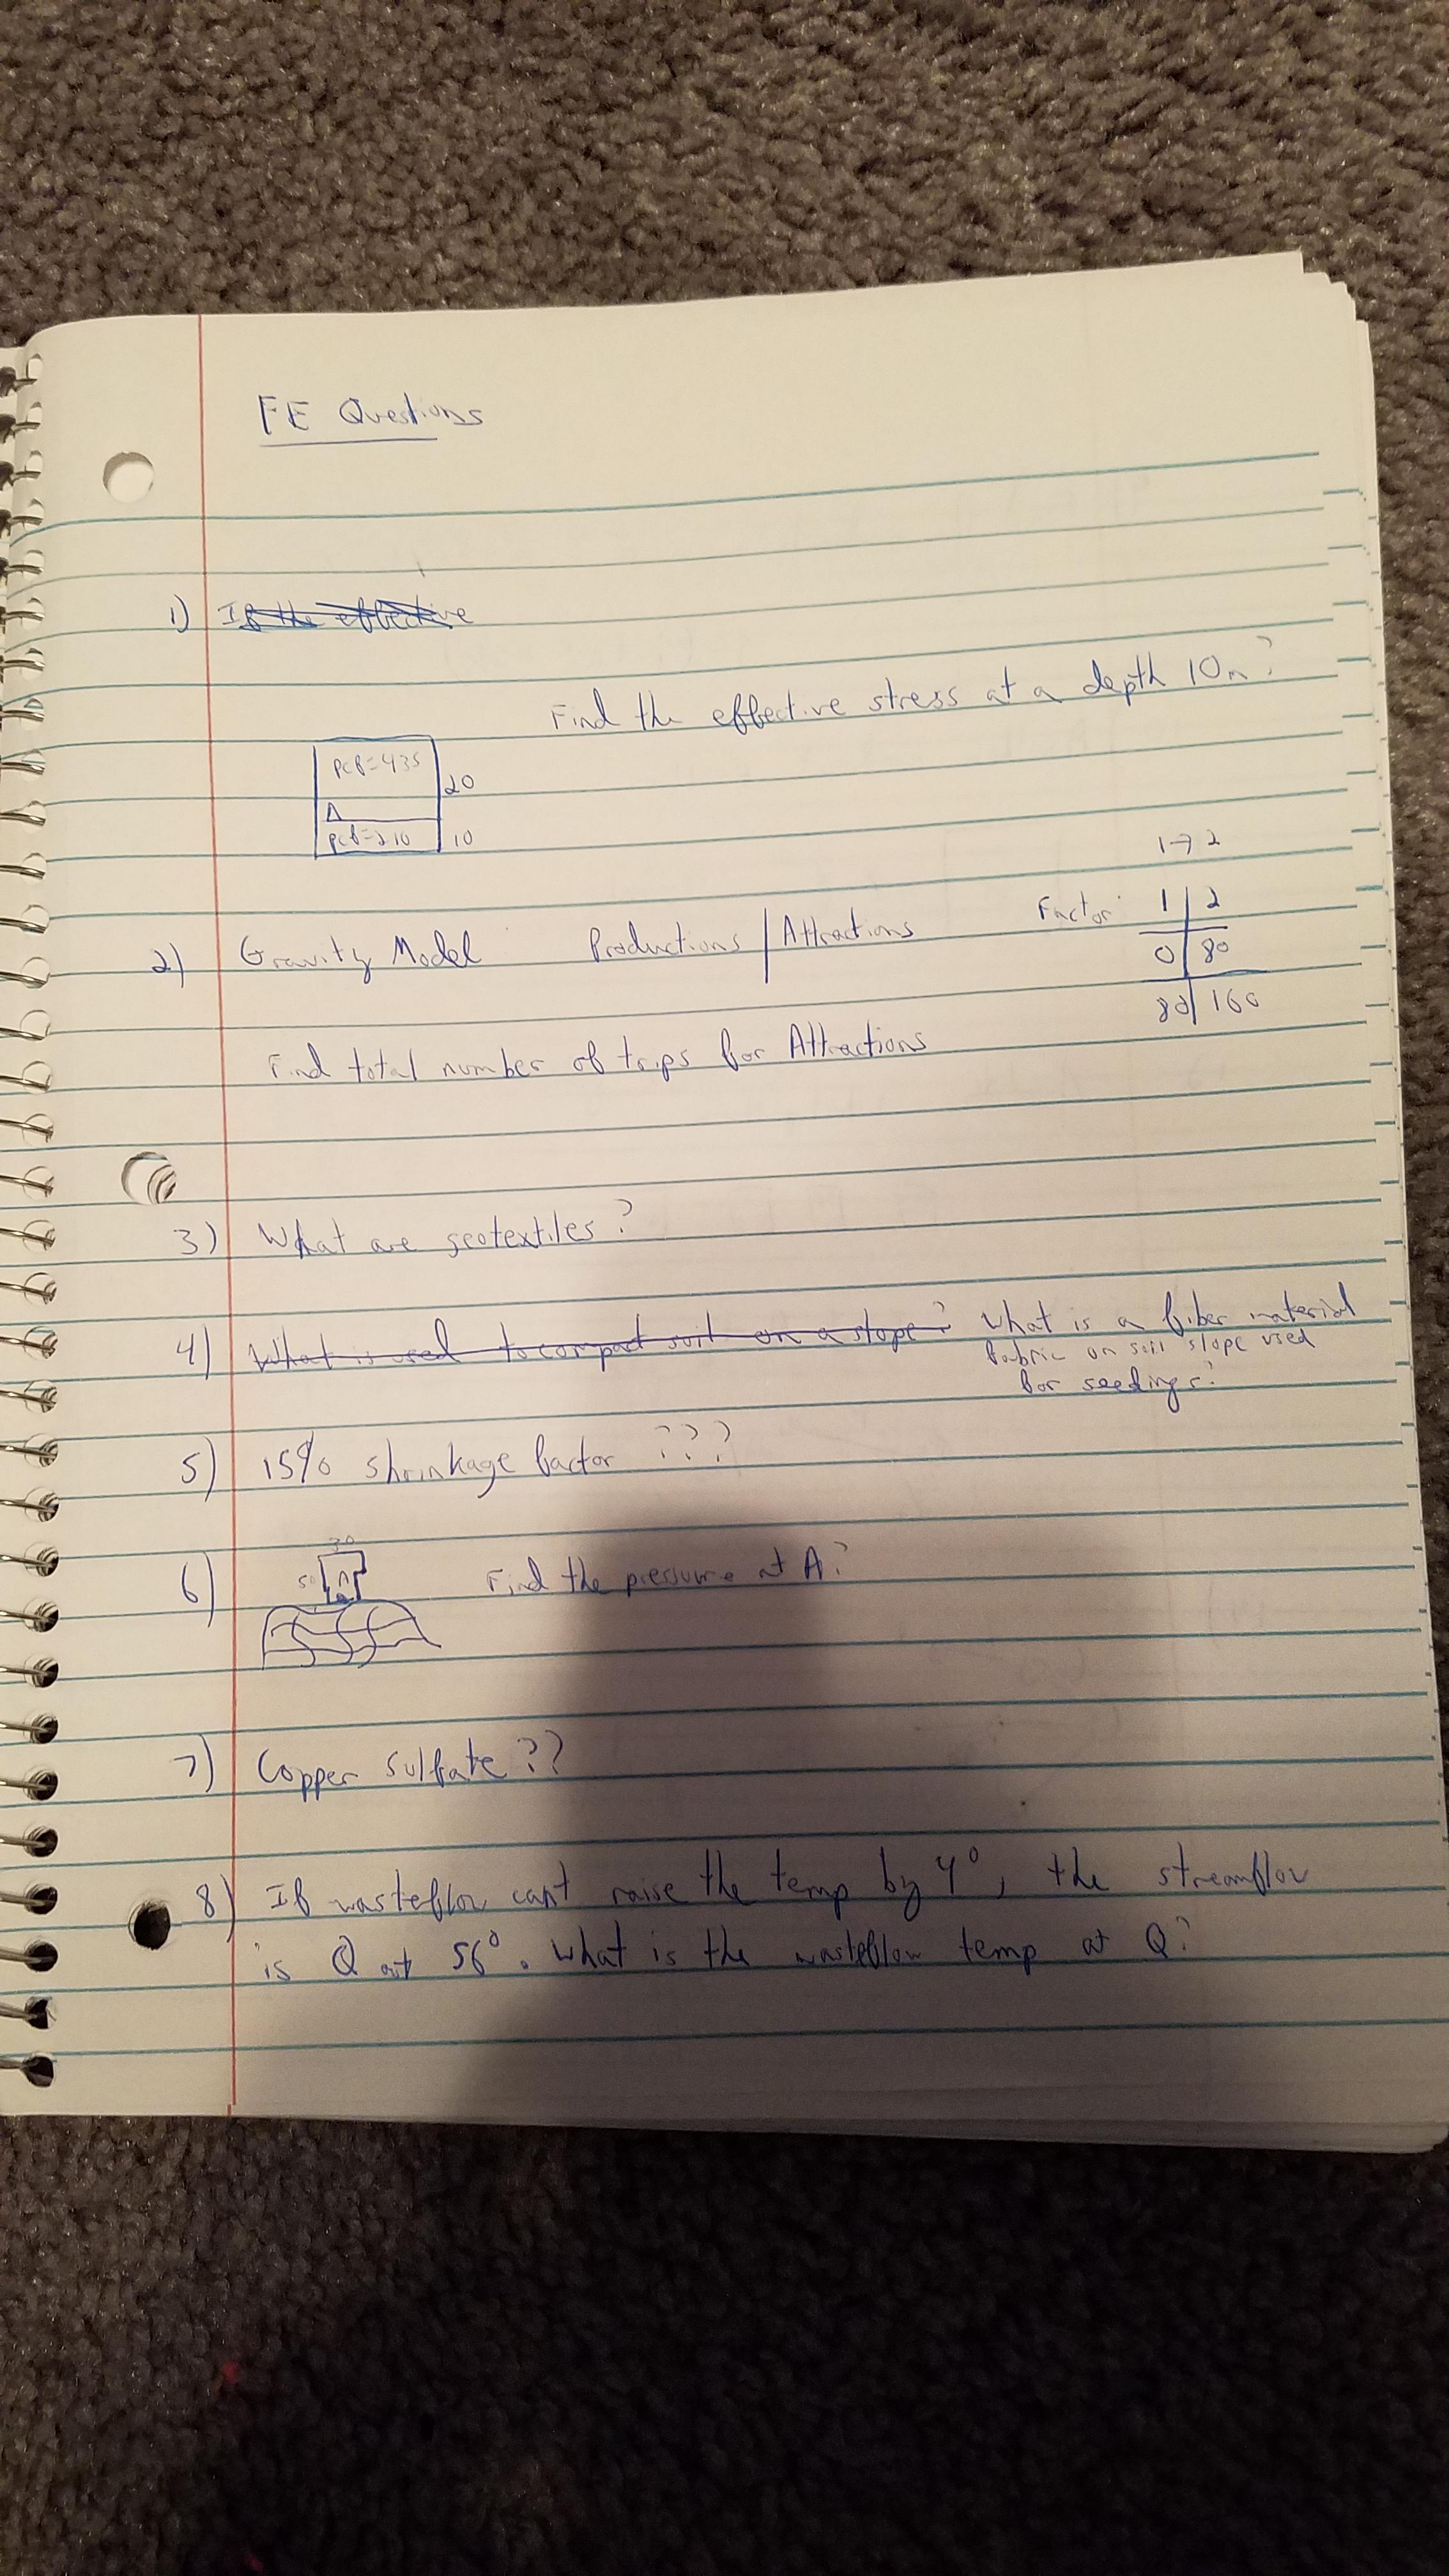 FE Questions
1) If the effective
Find the effective stress at a depth 10m?
pcf=435
20
pcf=210
10
1→2
2) Gravity Model Productions | Attractions Factor: 1 | 2
0 | 80
80 | 160
Find total number of trips for Attractions
3) What are geotextiles?
4) What is used to compact soil on a slope? What is a fiber material
fabric on soil slope used
for seedings?
5) 15% shrinkage factor ???
30
50 A
6) Find the pressure at A?
7) Copper sulfate??
8) If wasteflow can't raise the temp by 4°, the streamflow
is Q at 56°. What is the wasteflow temp at Q?